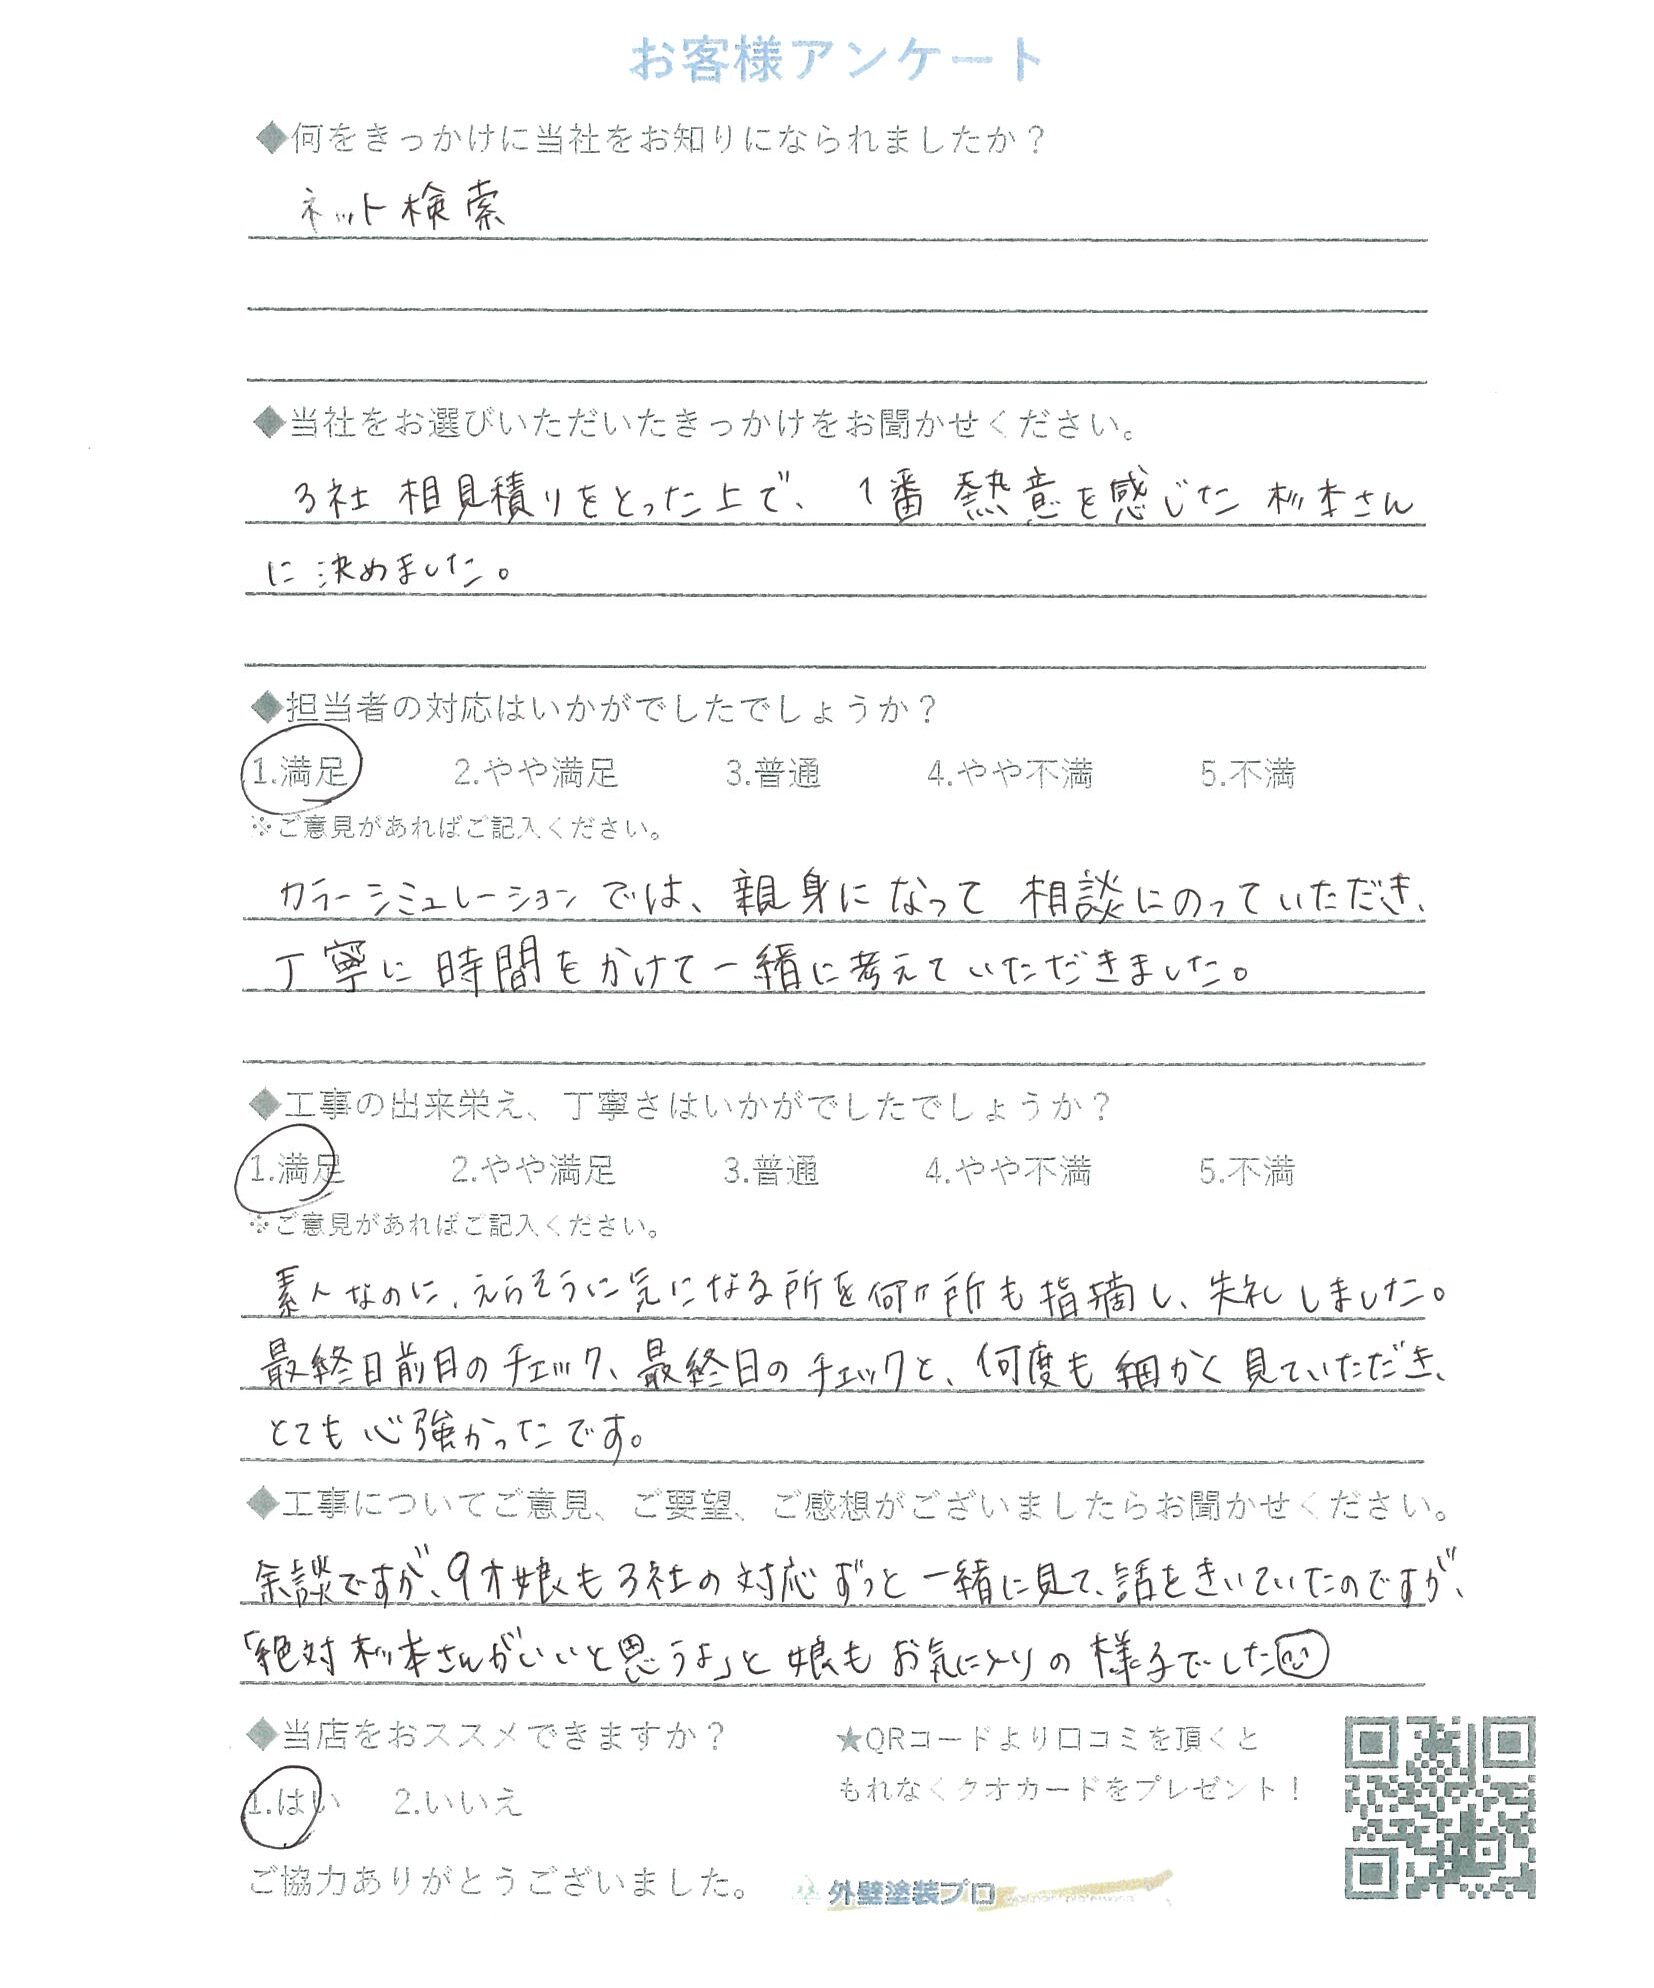 お客様アンケート
◆何をきっかけに当社をお知りになられましたか？
ネット検索
◆当社をお選びいただいたきっかけをお聞かせください。
3社 相見積りをとった上で、1番 熱意を感じた 杉本さん
に 決めました。
◆担当者の対応はいかがでしたでしょうか？
1.満足 2.やや満足 3.普通 4.やや不満 5.不満
※ご意見があればご記入ください。
カラーシミュレーションでは、親身になって 相談にのっていただき、
丁寧に 時間をかけて一緒に考えていただきました。
◆工事の出来栄え、丁寧さはいかがでしたでしょうか？
1.満足 2.やや満足 3.普通 4.やや不満 5.不満
※ご意見があればご記入ください。
素人なのに、えらそうに気になる所を何ヶ所も指摘し、失礼しました。
最終日前日のチェック、最終日のチェックと、何度も 細かく 見ていただき、
とても 心強かったです。
◆工事についてご意見、ご要望、ご感想がございましたらお聞かせください。
余談ですが、9才娘も3社の対応ずっと一緒に見て、話をきいていたのですが、
「絶対 杉本さんがいいと思うよ」と 娘も お気に入りの 様子でした
◆当店をおススメできますか？
★QRコードより口コミを頂くと
もれなくクオカードをプレゼント！
1.はい 2.いいえ
ご協力ありがとうございました。
外壁塗装プロ